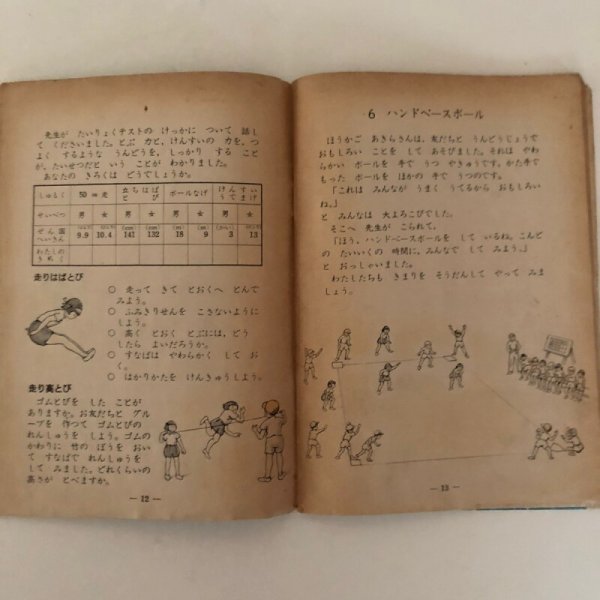 先生が たいりょくテストの けっかに ついて 話し
て くださいました。とぶ 力と、けんすいの 力を、つ
よく するような うんどうを、しっかり する こと
が、たいせつだと いう ことが わかりました。
あなたの きろくは どうでしょうか。
しゅもく 50m走 立ちはばとび ボールなげ けんすい うでまげ
せいべつ 男 女 男 女 男 女 男 女
ぜん国へいきん 9.9 10.4 (cm)141 (cm)132 (m)18 (m)9 3 13
わたしのきろく
走りはばとび
○ 走って きて とおくへ とんで
みよう。
○ ふみきりせんを こさないように
しよう。
○ 高く とおく とぶには、どう
したら よいだろうか。
○ すなばは やわらかく して お
く。
○ はかりかたを けんきゅうしよう。
走り高とび
ゴムとびを した ことが
ありますか。お友だちと グル
ープを 作って ゴムとびの
れんしゅうを しよう。ゴムの
かわりに 竹の ぼうを おい
て すなばで れんしゅうを
して みました。どれくらいの
高さが とべますか。
— 12 —
6 ハンドベースボール
ほうかご あきらさんは、友だちと うんどうじょうで
おもしろい ことを して あそびました。それは やわ
らかい ボールを 手で うつ やきゅうです。かた手で
もった ボールを ほかの 手で うつのです。
「これは みんなが うまく うてるから おもしろい
ね。」
と みんなは 大よろこびでした。
そこへ 先生が こられて、
「ほう、ハンドベースボールを して いるね。こんど
の たいいくの 時間に、みんなで して みよう。」
と おっしゃいました。
わたしたちも きまりを そうだんして やって みま
しょう。
— 13 —